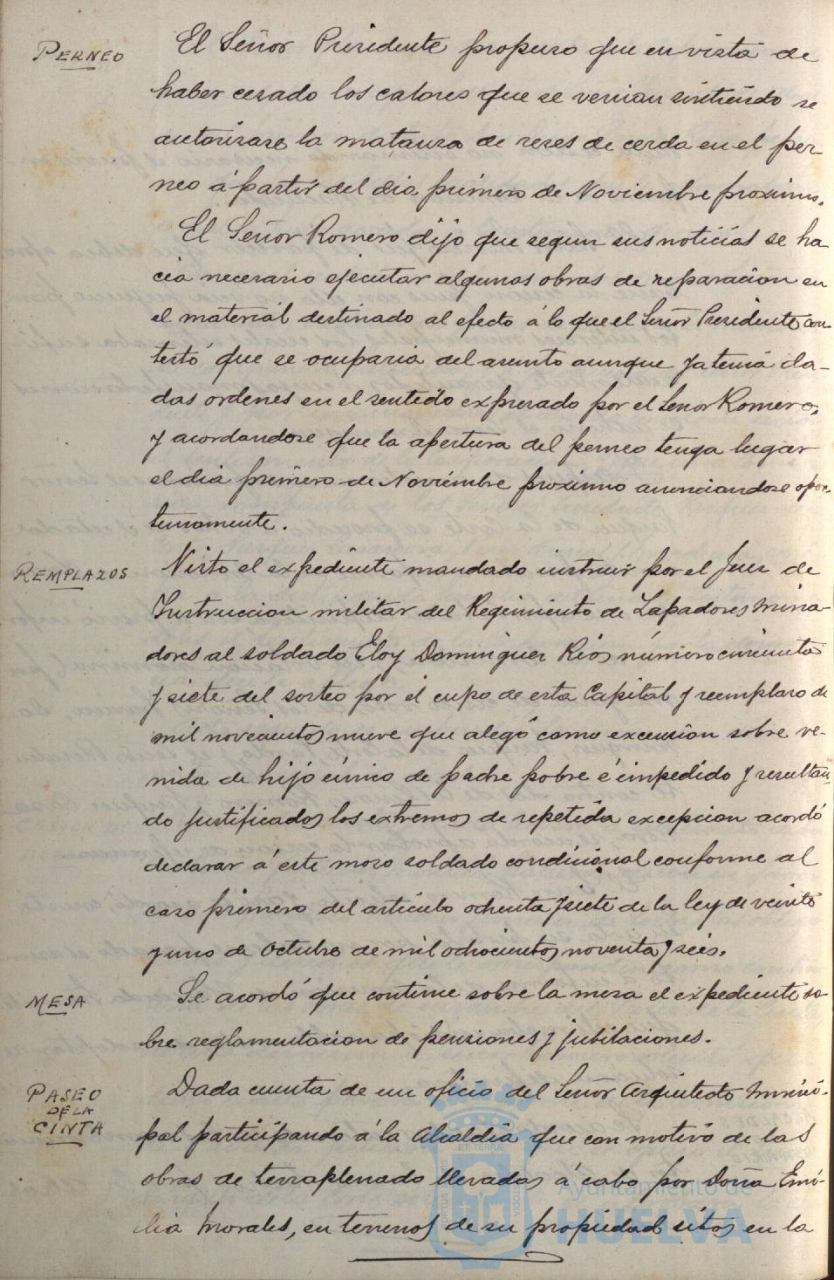 PERNEO
El Señor Presidente propuso que en vista de
haber cesado los calores que se venian sintiendo se
autorizase la matanza de reses de cerda en el per-
neo á partir del dia primero de Noviembre proximo.
El Señor Romero dijo que segun sus noticias se ha
cia necesario ejecutar algunas obras de reparacion en
el material destinado al efecto á lo que el Señor Presidente con
testó que se ocuparia del asunto aunque ya tenia da-
das ordenes en el sentido expresado por el Señor Romero,
y acordandose que la apertura del perneo tenga lugar
el dia primero de Noviembre proximo anunciandose opor
tunamente.
REMPLAZOS
Visto el expediente mandado instruir por el Juez de
Instruccion militar del Regimiento de Zapadores mina-
dores al soldado Eloy Dominguez Rios número cincuenta
y siete del sorteo por el cupo de esta Capital y reemplazo de
mil novecientos nueve que alegó como excepcion sobre ve-
nida de hijo único de padre pobre é impedido y resultan
do justificados los extremos de repetida excepcion acordó
declarar á este mozo soldado condicional conforme al
caso primero del artículo ochenta y siete de la ley de veinte
y uno de Octubre de mil ochocientos noventa y seis.
MESA
Se acordó que continue sobre la mesa el expediente so-
bre reglamentacion de pensiones y jubilaciones.
PASEO
DE LA
CINTA
Dada cuenta de un oficio del Señor Arquitecto munici-
pal participando á la Alcaldia que con motivo de las
obras de terraplenado llevadas á cabo por Doña Emi-
lia Morales, en terrenos de su propiedad sitos en la
Ayuntamiento de
HUELVA